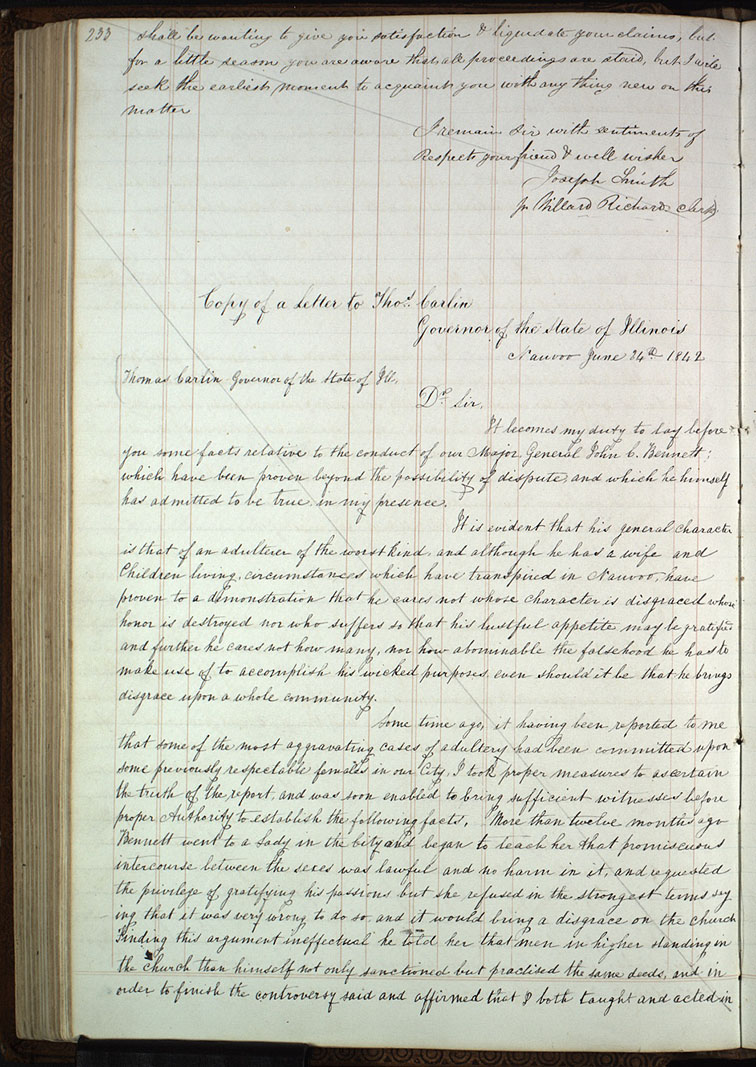 233 shall be wanting to give you satisfaction & liquidate your claims, but
for a little season you are aware that all proceedings are staid, but I will
seek the earliest moment to acquaint you with any thing new on this
matter
I remain Sir with sentiments of
Respect your friend & well wisher
Joseph Smith
pr Willard Richards clerk
Copy of a Letter to Thos. Carlin
Governor of the State of Illinois
Nauvoo June 24th 1842
Thomas Carlin Governor of the State of Ill.
Dr. Sir.
It becomes my duty to lay before
you some facts relative to the conduct of our Major General John C. Bennett;
which have been proven beyond the possibility of dispute, and which he himself
has admitted to be true in my presence.
It is evident that his general character
is that of an adulterer of the worst kind, and although he has a wife and
Children living, circumstances which have transpired in Nauvoo, have
proven to a demonstration that he cares not whose character is disgraced whose
honor is destroyed nor who suffers so that his lustful appetite may be gratified
and further he cares not how many, nor how abominable the falsehood he has to
make use of to accomplish his wicked purposes, even should it be that he brings
disgrace upon a whole community.
Some time ago, it having been reported to me
that some of the most aggravating cases of adultery had been committed upon
some previously respectable females in our City, I took proper measures to ascertain
the truth of the report, and was soon enabled to bring sufficient witnesses before
proper Authority to establish the following facts. More than twelve months ago
Bennett went to a Lady in the City and began to teach her that promiscuous
intercourse between the sexes was lawful and no harm in it, and requested
the privilege of gratifying his passions but she refused in the strongest terms say
ing that it was very wrong to do so, and it would bring a disgrace on the church
Finding this argument ineffectual he told her that men in higher standing in
the church than himself not only sanctioned but practised the same deeds, and in
order to finish the controversy said and affirmed that I both taught and acted in